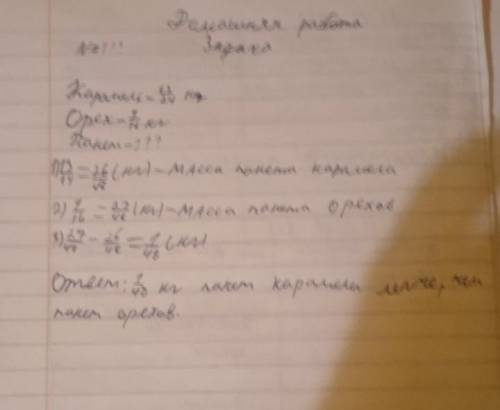 Домашняя работа
Задача
Карамель = 13/24 кг
Орех = 9/16 кг
Пакет = ???
1) 13/24 = 26/48 (кг) - масса пакета карамела
2) 9/16 = 27/48 (кг) - масса пакета орехов
3) 27/48 - 26/48 = 1/48 (кг)
Ответ: 1/48 кг пакет карамели легче, чем
пакет орехов.